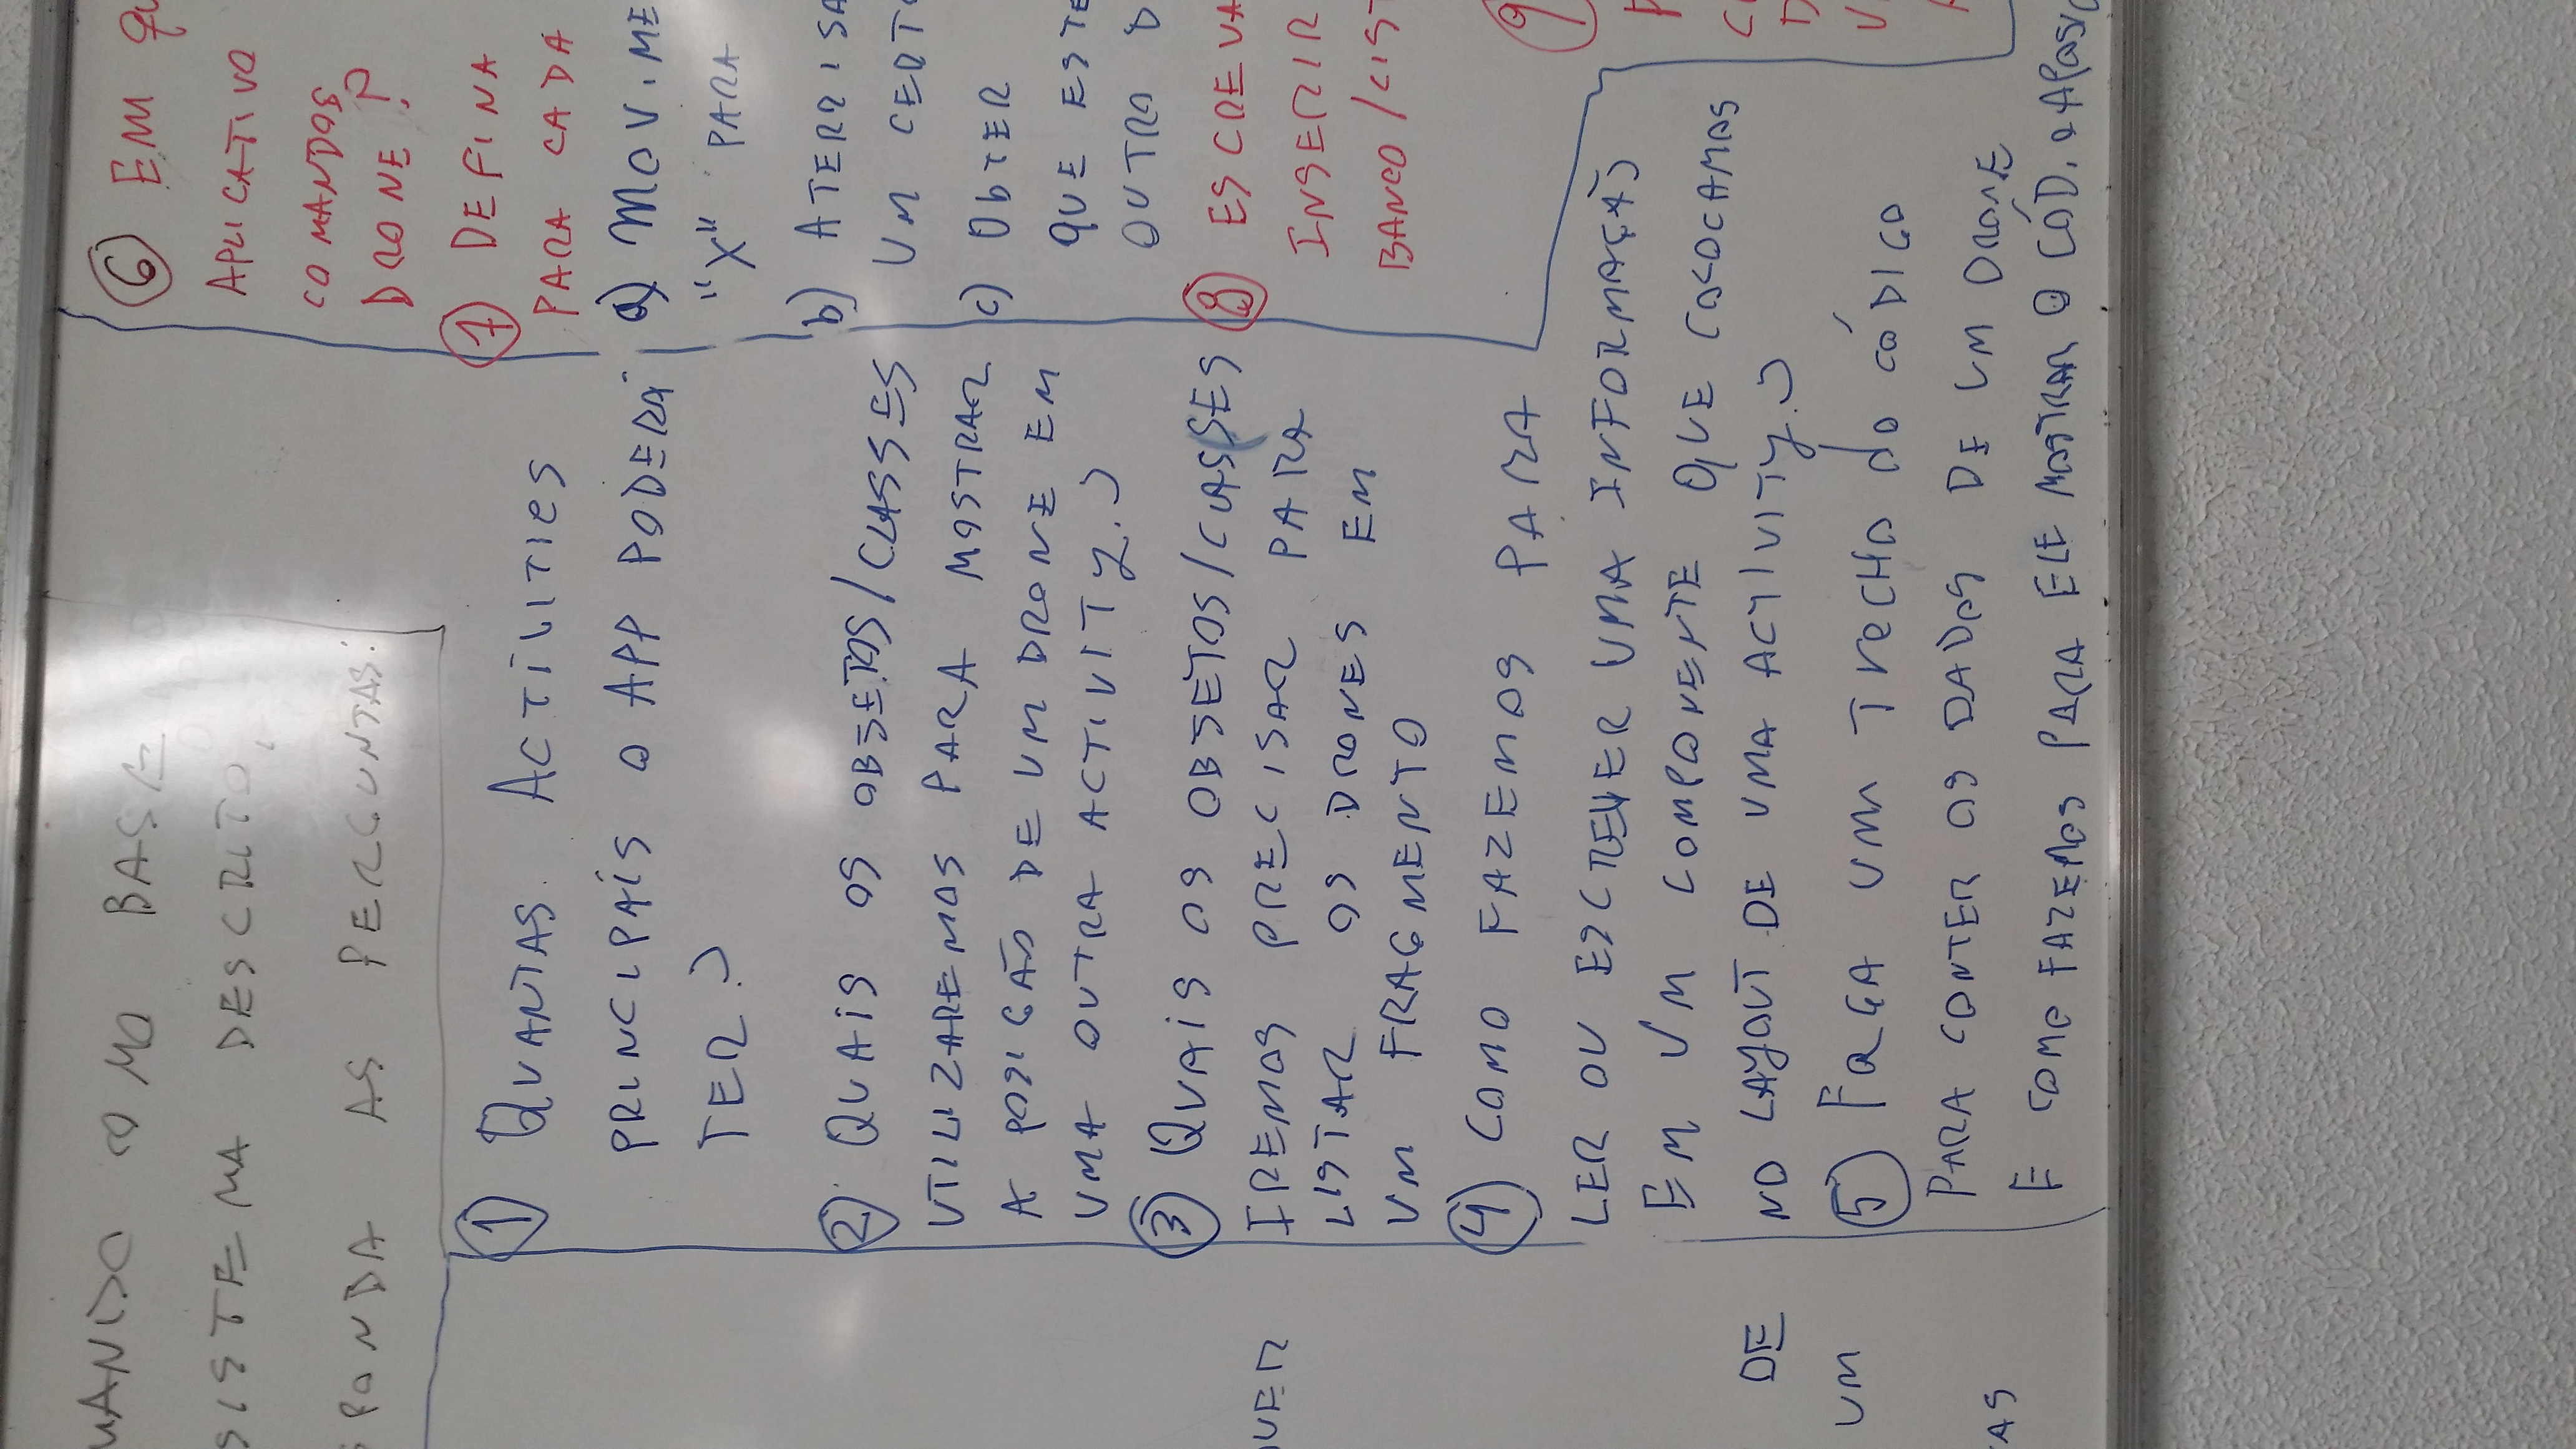 MANDO COMO BASE
SISTEMA DESCRITO,
SPONDA AS PERGUNTAS:
① QUANTAS ACTIVITIES
PRINCIPAIS O APP PODERÁ
TER?
② QUAIS OS OBJETOS/CLASSES
UTILIZAREMOS PARA MOSTRAR
A POSIÇÃO DE UM DRONE EM
UMA OUTRA ACTIVITY?
③ QUAIS OS OBJETOS/CLASSES
IREMOS PRECISAR PARA
LISTAR OS DRONES EM
UM FRAGMENTO
④ COMO FAZEMOS PARA
LER OU ESCREVER UMA INFORMAÇÃO
EM UM COMPONENTE QUE COLOCAMOS
NO LAYOUT DE UMA ACTIVITY?
⑤ FAÇA UM TRECHO DO CÓDIGO
PARA CONTER OS DADOS DE UM DRONE
E COMO FAZEMOS PARA ELE MOSTRAR O CÓD. e A POSIÇ
⑥ EM QU
APLICATIVO
COMANDOS
DRONE?
⑦ DEFINA
PARA CADA
a) MOVIME
"X" PARA
b) ATERRISA
UM CERTO
c) OBTER
QUE ESTE
OUTRO D
⑧ ESCREVA
INSERIR
BANCO/LIST
⑨
UER
DE
UM
AS